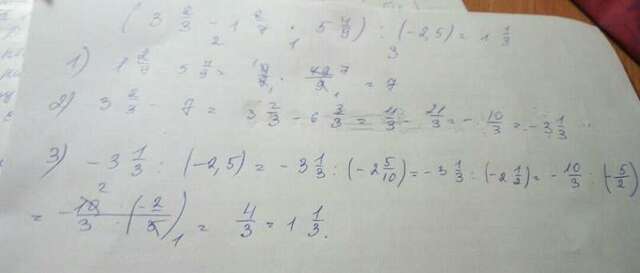 (3 2/3 - 1 2/7 · 5 4/9) : (-2,5) = 1 1/3
1) 1 2/7 · 5 4/9 = 9/7 · 49/9 = 7
2) 3 2/3 - 7 = 3 2/3 - 6 3/3 = 11/3 - 21/3 = - 10/3 = - 3 1/3
3) - 3 1/3 : (-2,5) = - 3 1/3 : (-2 5/10) = - 3 1/3 : (-2 1/2) = - 10/3 : (- 5/2)
= - 10/3 · (- 2/5) = 4/3 = 1 1/3.